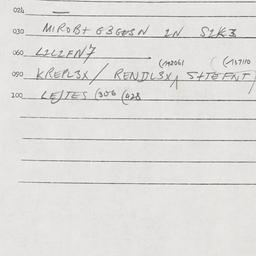 024 —
030 MIROBT G3GESN IN S2K3
060 L2L2FN7
(142061 (157110
090 KREPL3X / RENDL3X, S+IEFNT
100 LEJTES (356 (028